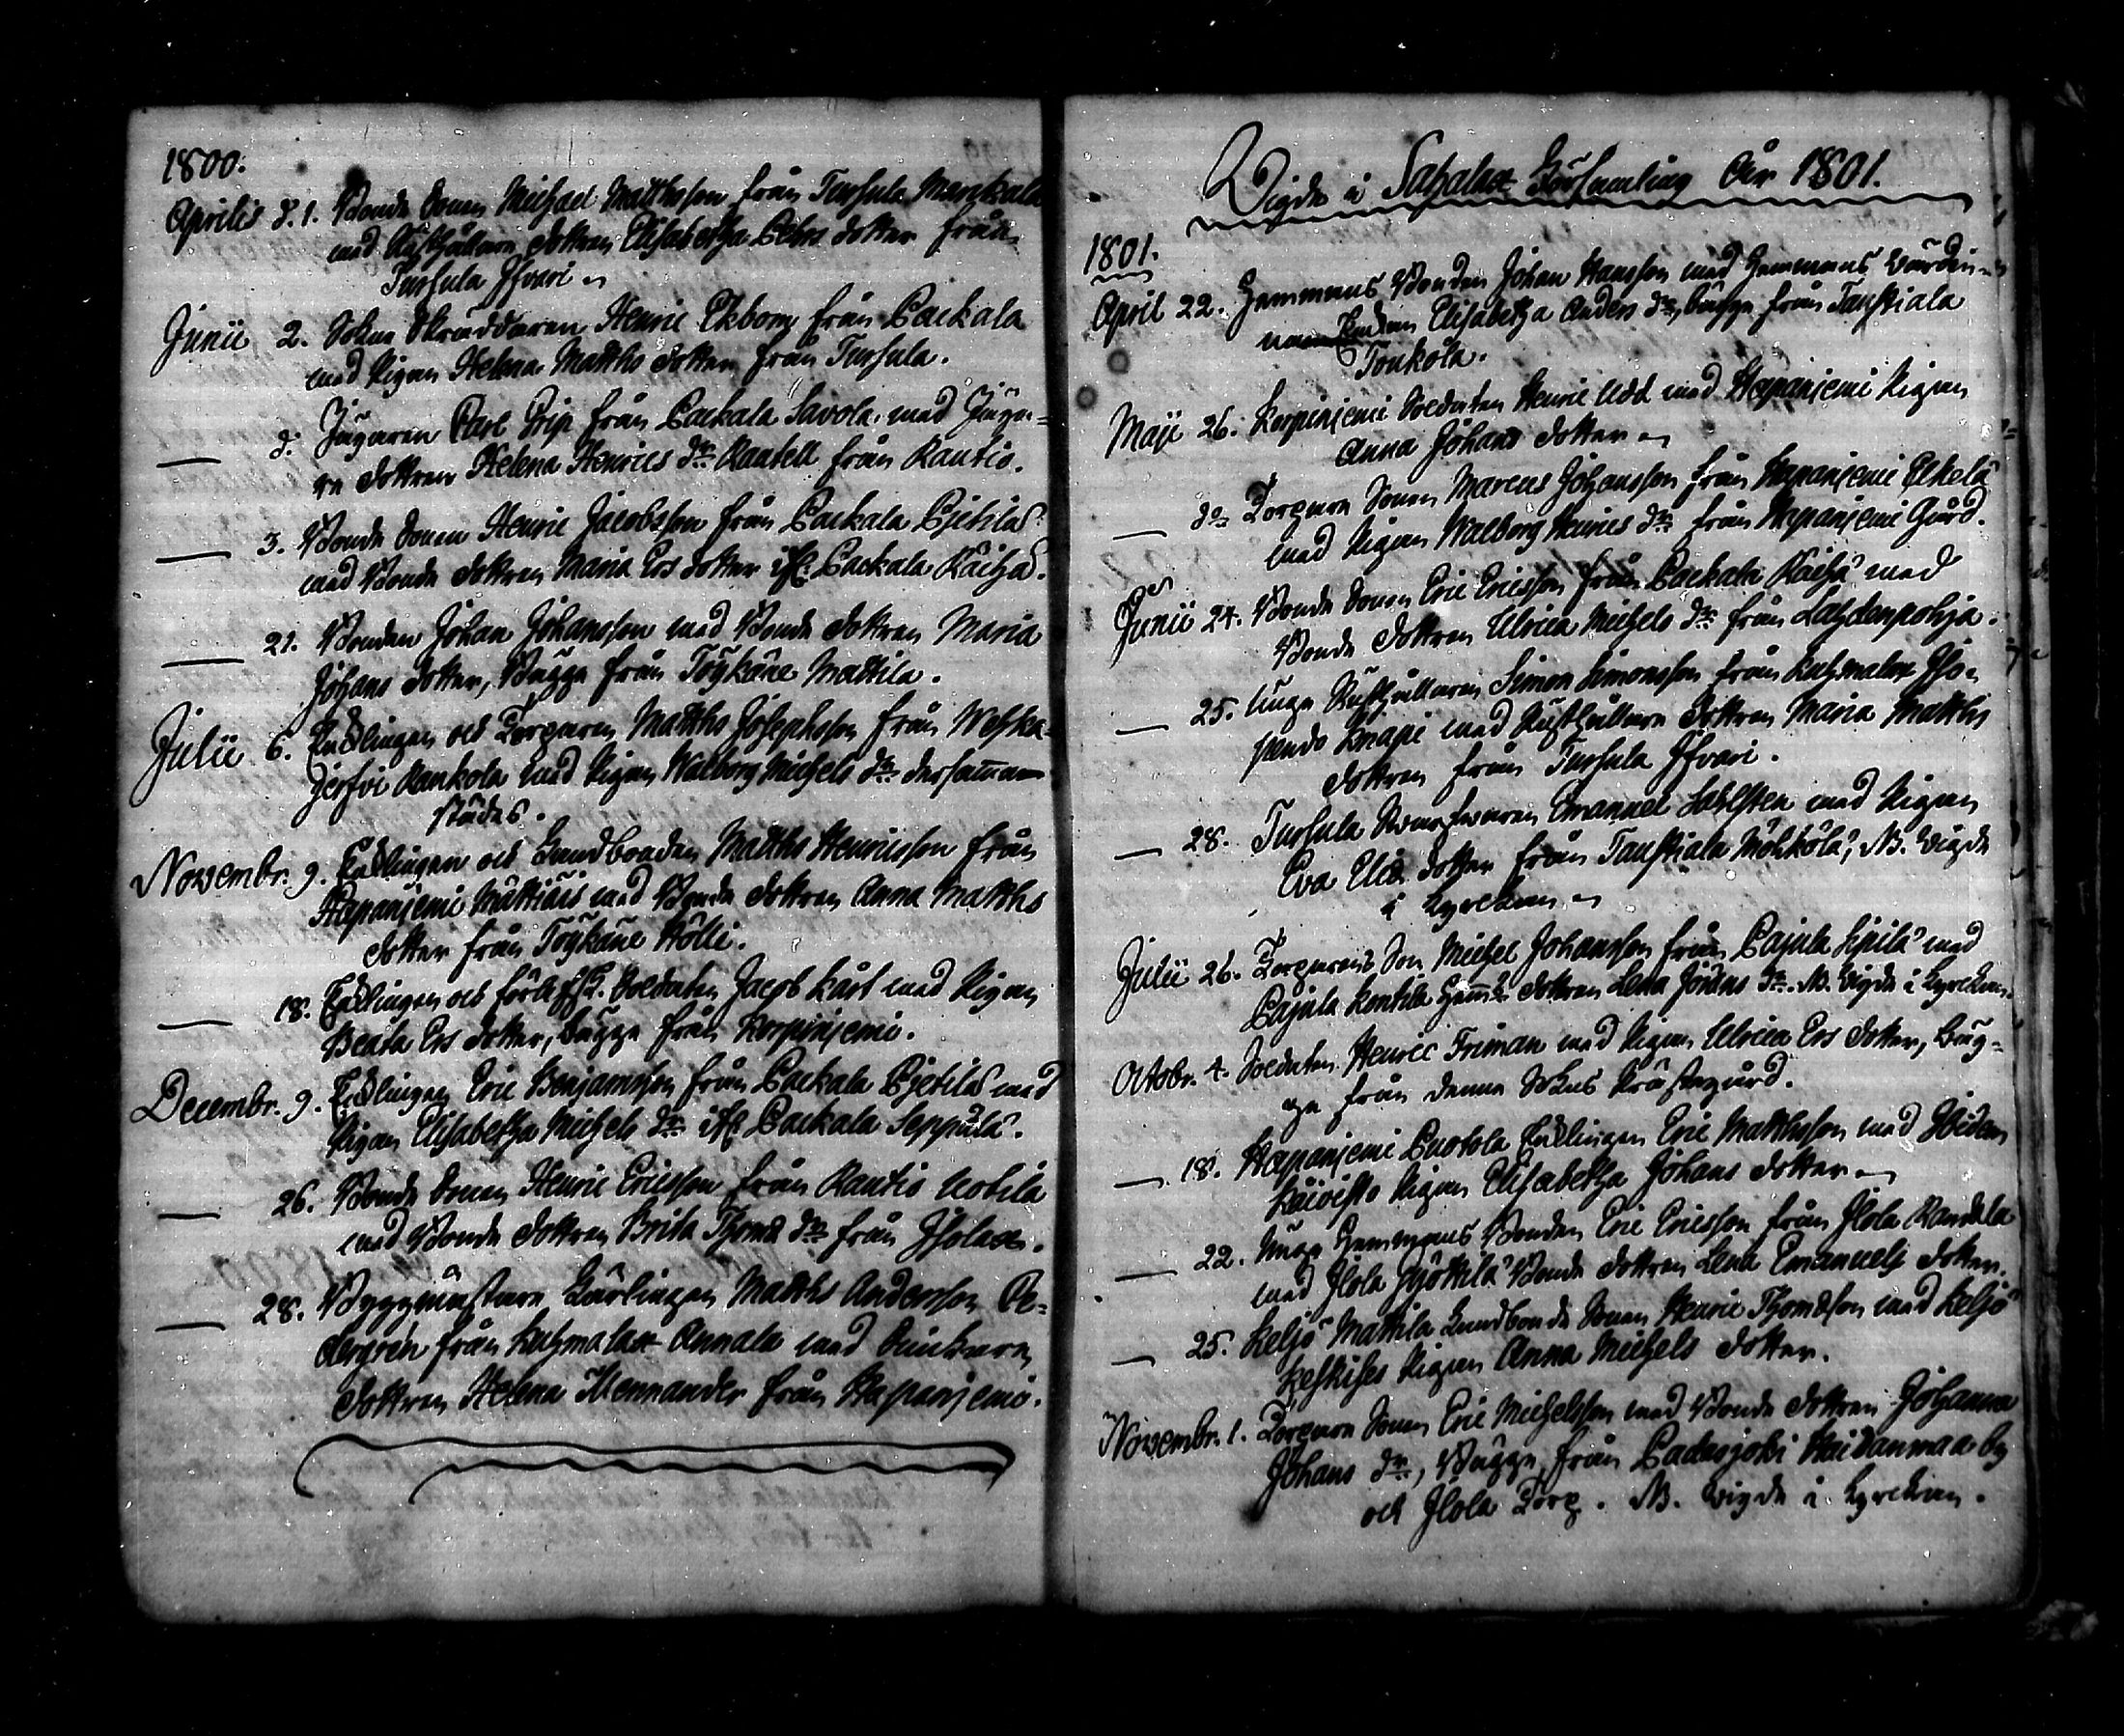 1800.
Aprilis d. 1. Bonde Sonen Michael Matthsson från Tursula Marskala
med Rusthållare dottren Elisabetha Pehrs dotter från
Tursula Isvari
Junii 2. Sokne Skräddaren Henric Ekbom från Packala
med Pigan Helena Matths dotter från Tursula.
— d: Jägaren Carl Grip från Packala Savola med Jäga-
re dottren Helena Henrics dr Rautell från Rautio.
— 3. Bonde Sonen Henric Jacobsson från Packala Pjetilä
med Bonde dottren Maria Ers dotter ifr. Packala Räihä.
— 21. Bonden Johan Johansson med Bonde dottren Maria
Johans dotter, Bägge från Töykäne Mattila.
Julii 6. Enklingen och Torparen Matths Josephsson från Wehka-
jerfvi Rankola med Pigan Walborg Michels dr dersamma-
städes.
Novembr. 9. Enklingen och Landbonden Matths Henricsson från
Hapaniemi Mattiais med Bonde dottren Anna Matths
dotter från Töykäne Hölli.
— 18. Enklingen och förafsk. Soldaten Jacob Kårt med Pigan
Beata Ers dotter, bägge från Korpiniemi.
Decembr. 9. Enklingen Eric Benjamsson från Packala Pjetilä med
Pigan Elisabetha Michels dr ifr. Packala Seppälä.
— 26. Bonde Sonen Henric Ericsson från Rautio Uotila
med Bonde dottren Brita Thomæ dr från Isolax.
— 28. Byggmästare Lärlingen Matths Andersson Ce-
dergrén från Kuhmalax Annala med
dottren Helena Mennander från Hapaniemi.
Vigde i Sahalax Församling År 1801.
1801.
April 22. Hemmans Bonden Johan Hansson med Hemmans Värdin-
nan Enkan Elisabetha Anders dr, bägge från Taustiala
Toukola.
Maji 26. Korpiniemi Soldaten Henric Udd med Hapaniemi Pigan
Anna Johans dotter
— do Torpare Sonen Marcus Johansson från Hapaniemi Eskelä
med Pigan Walborg Henrics dr från Hapaniemi Gård.
Junii 24. Bonde Sonen Eric Ericsson från Packala Räihä med
Bonde dottren Ulrica Michels dr från Lahdenpohja.
— 25. Unga Rusthållaren Simon Simonsson från Kuhmalax Iso-
pendo Knaapi med Rusthållare dottren Maria Matths
dotter från Tursula Isvari.
— 28. Tursula Emanuel Sahlsten med Pigan
Eva Eliæ dotter från Taustiala Mölkölä, NB. Vigde
i Kyrckan
Julii 26. Torparens Son Michel Johansson från Pajula Sipilä med
Pajula Kontila Hemb. dottren Lena Jörans dr. NB. Vigde i Kyrckan.
Octobr. 4. Soldaten Henric Friman med Pigan Ulrica Ers dotter, Bäg-
ge från denna Sokns Prästegård.
— 18. Hapaniemi Puottola Enklingen Eric Matthsson med
Käivisto Pigan Elisabetha Johans dotter
— 22. Unga Hemmans Bonden Eric Ericsson från Ilola Randala
med Ilola Bonde dottren Lena Emanuels dotter.
— 25. Keljo Mattila Landbonde Sonen Henric Thomasson med Keljo
Keskises Pigan Anna Michels dotter.
Novembr. 1. Torpare Sonen Eric Michelsson med Bonde dottren Johanna
Johans dr, Bägge från Padasjoki Maidanmaa by
och Ilola Torp. NB. Vigde i Kyrckan.